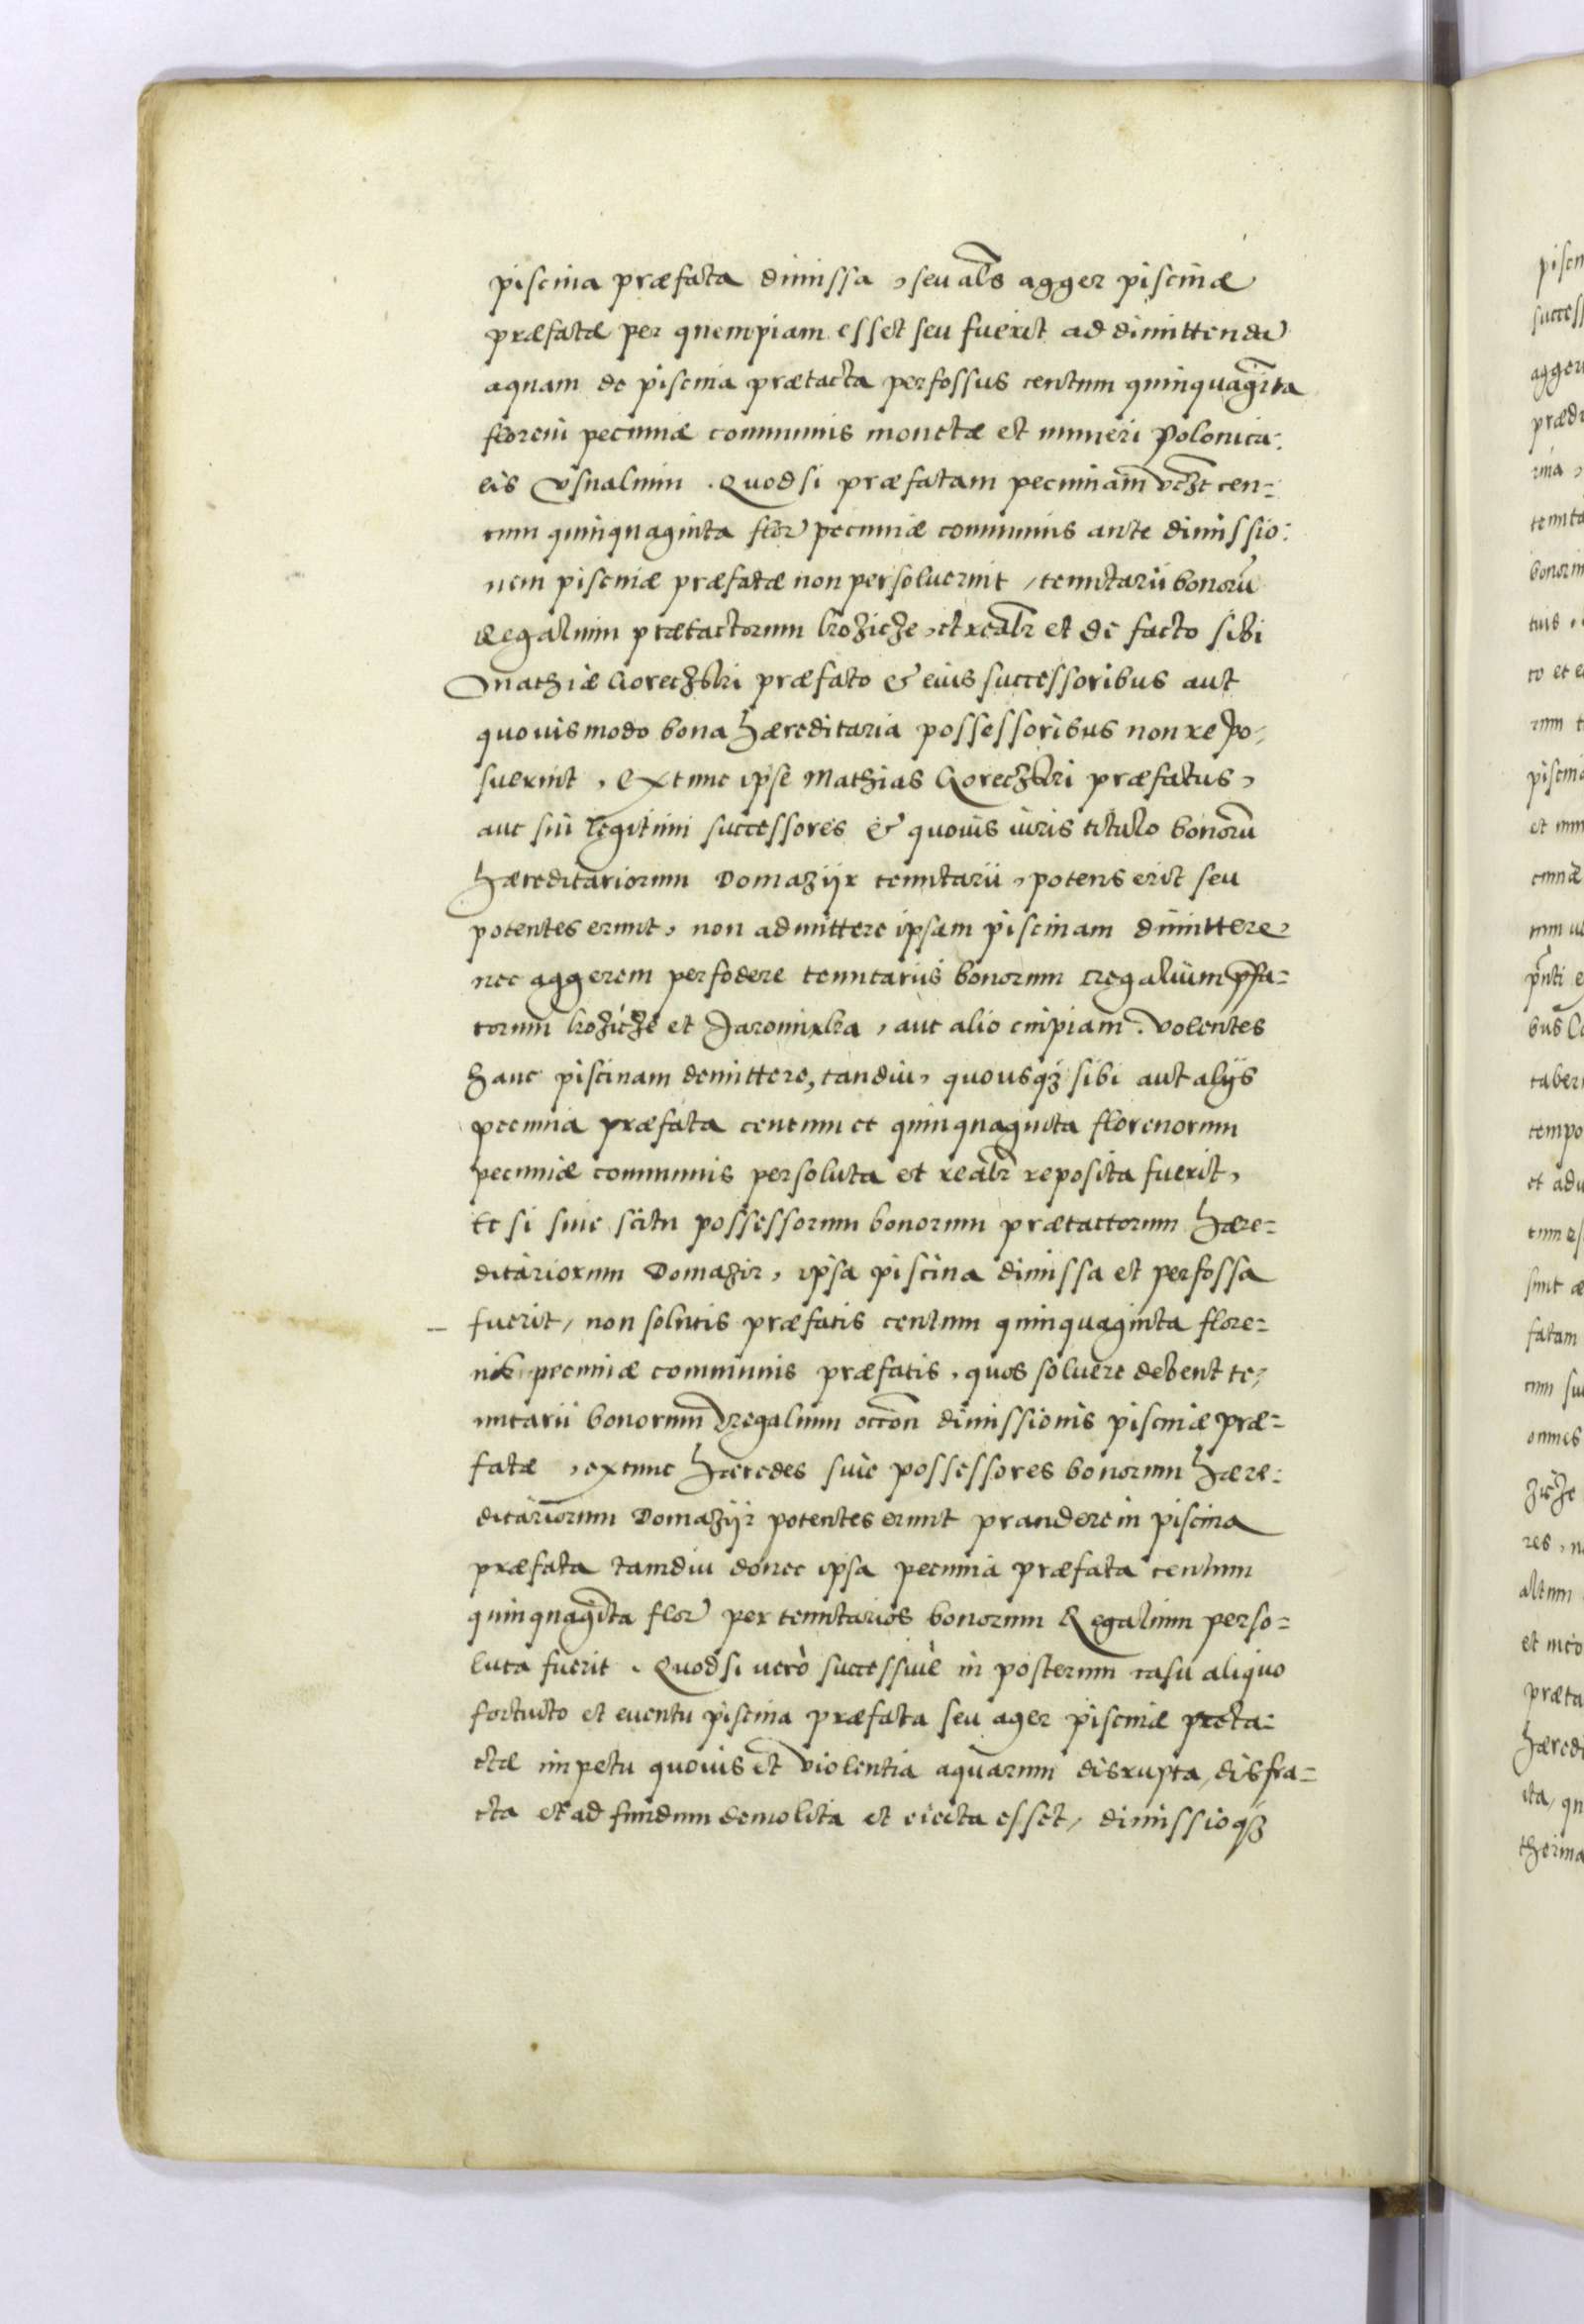 piscina præfata dimissa, seu als agger piscinæ
præfatæ per quempiam esset seu fuerit ad dimittendũ
aquam de piscina prætacta perfossus centum quinquagĩta
floreni pecuniæ communis monetæ et numeri Polonica:
lis vsualium. Quod si præfatam pecuniam vczt cen=
tum quinquaginta flor pecuniæ communis ante dimissio:
nem piscinæ præfatæ non persoluerint, tenutarii bonorũ
Regalium prætactorum koziche, et realr et de facto sibi
Mathiæ Goreczski præfato & eius successoribus aut
quouismodo bona hæreditaria possessoribus non repo=
suerint, Extunc ipse Mathias Goreczski præfatus,
aut sui legitimi successores & quouis iuris titulo bonorũ
hæreditariorum Domaziir tenutarii, potens erit seu
potentes erunt, non admittere ipsam piscinam dimittere
nec aggerem perfodere tenutariis bonorum regalium p̃fa=
torum koziche et Jaromirka, aut alio cuipiam. volentes
hanc piscinam demittere, tandiu, quousq̃ sibi aut alijs
pecunia præfata centum et quinquaginta florenorum
pecuniæ communis persoluta et realr reposita fuerit,
Et si sine scitu possessorum bonorum prætactorum hære=
ditariorum Domazir, ipsa piscina dimissa et perfossa
fuerit, non solutis præfatis centum quinquaginta flore=
nis pecuniæ communis præfatis, quos soluere debent te=
nutarii bonorum regalium occõn dimissionis piscinæ præ=
fatæ, extunc hæredes siue possessores bonorum hære:
ditariorum Domaziir potentes erunt prandere in piscina
præfata tamdiu donec ipsa pecunia præfata centum
quinquagĩta flor per tenutarios bonorum Regalium perso=
luta fuerit. Quod si uerò successiuè in posterum casu aliquo
fortuito et euentu piscina præfata seu ager piscinæ preta=
ctæ impetu quouis et violentia aquarum disrupta, disfra=
cta et ad fundum demolita et eiecta esset, dimissioq̃